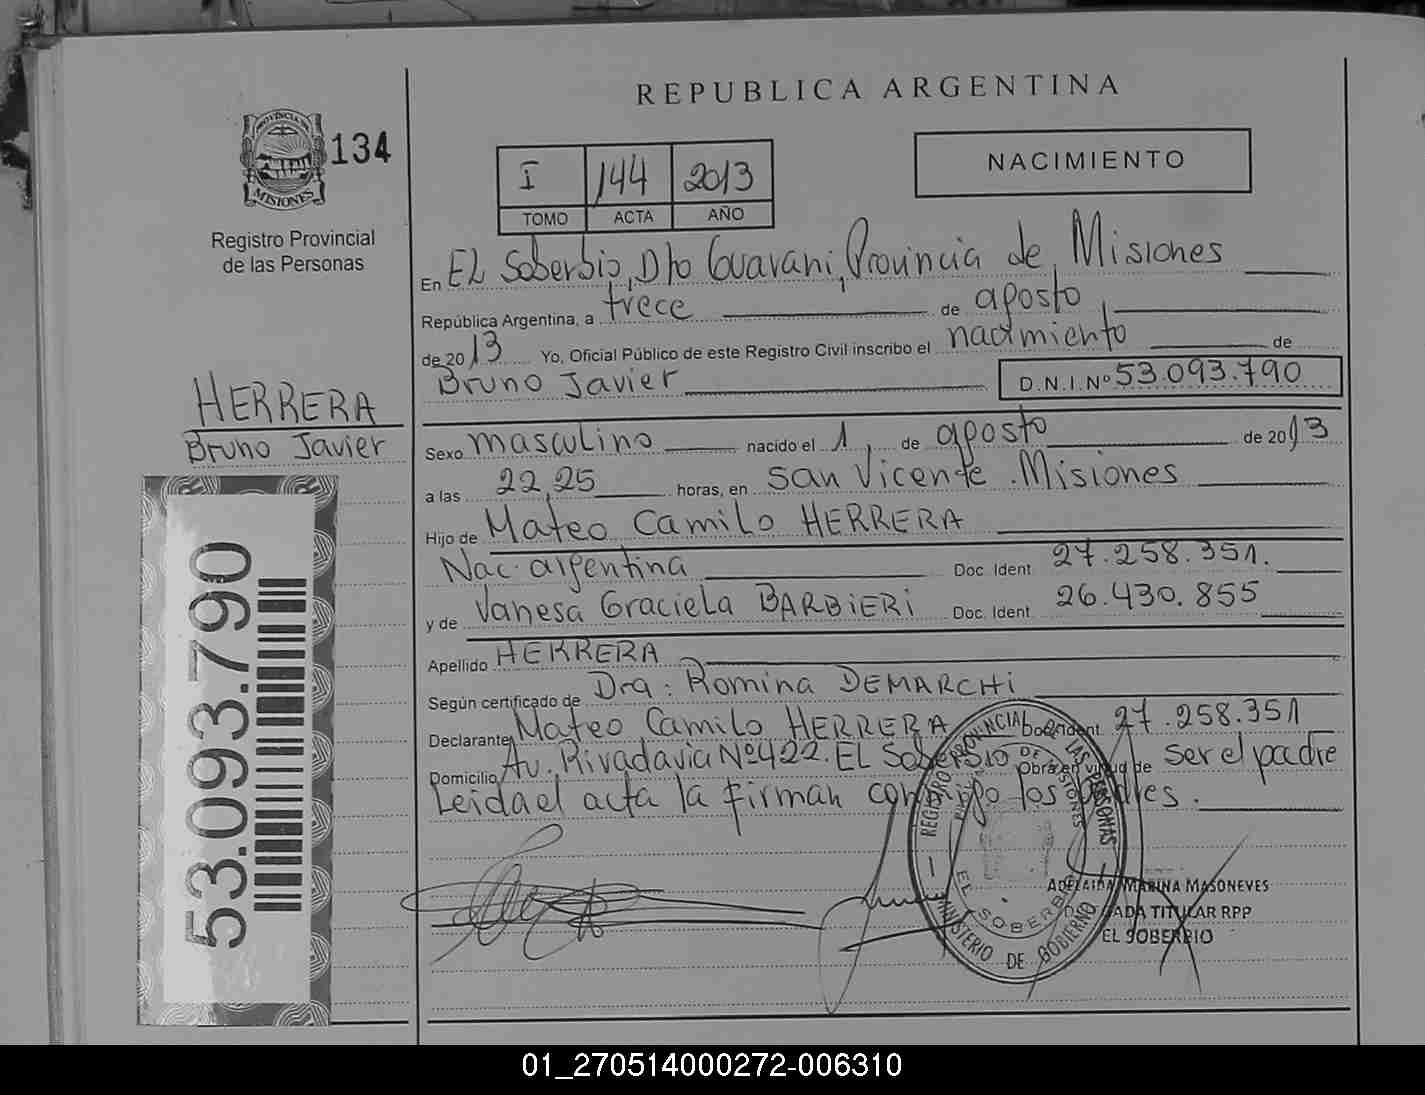 REPUBLICA ARGENTINA
PROVINCIA DE
MISIONES
134
Registro Provincial
de las Personas
I 144 2013
TOMO ACTA AÑO
NACIMIENTO
En EL Soberbio, Dto Guarani, Provincia de Misiones
República Argentina, a trece de agosto
de 2013 Yo, Oficial Público de este Registro Civil inscribo el nacimiento de
Bruno Javier D.N.I. Nº 53.093.790
HERRERA
Bruno Javier
Sexo masculino nacido el 1 de agosto de 2013
a las 22,25 horas, en San Vicente. Misiones
Hijo de Mateo Camilo HERRERA
Nac. argentina Doc. Ident 27.258.351.
y de Vanesa Graciela BARBiERi Doc. Ident. 26.430.855
Apellido HERRERA
Según certificado de Dra: Romina DEMARCHi
Declarante Mateo Camilo HERRERA Doc. Ident. 27.258.351
Domicilio Av. Rivadavia Nº422. EL Soberbio Obra en virtud de ser el padre
Leida el acta la firman conmigo los padres.
REGISTRO PROVINCIAL DE LAS PERSONAS
MINISTERIO DE GOBIERNO
EL SOBERBIO
ADELAIDA MARINA MASONEVES
DELEGADA TITULAR RPP
EL SOBERBIO
53.093.790
01_270514000272-006310